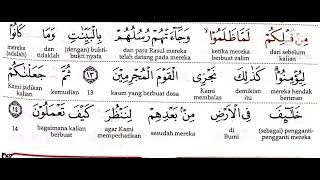 مِنْ قَبْلِكُمْ لَمَّا ظَلَمُوْا وَجَآءَتْهُمْ رُسُلُهُمْ بِالْبَيِّنٰتِ وَمَا كَانُوْا
dari sebelum kalian ketika mereka berbuat zalim dan para Rasul mereka telah datang pada mereka (dengan) bukti-bukti nyata dan tidaklah mereka (adalah)
لِيُؤْمِنُوْا كَذٰلِكَ نَجْزِى الْقَوْمَ الْمُجْرِمِيْنَ ١٣ ثُمَّ جَعَلْنٰكُمْ
mereka hendak beriman demikian itu Kami membalas kaum yang berbuat dosa 13 kemudian Kami jadikan kalian
خَلٰٓئِفَ فِى الْاَرْضِ مِنْۢ بَعْدِهِمْ لِنَنْظُرَ كَيْفَ تَعْمَلُوْنَ ١٤
(sebagai) pengganti-pengganti mereka di Bumi sesudah mereka agar Kami memperhatikan bagaimana kalian berbuat 14